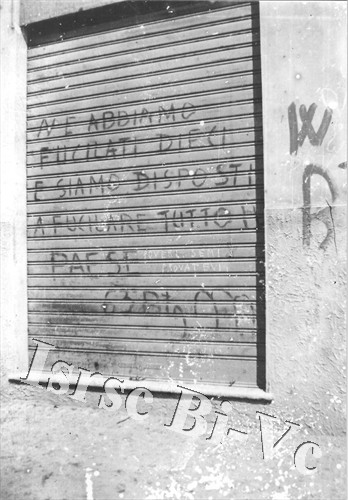 NE ABBIAMO
FUCILATI DIECI
E SIAMO DISPOSTI
A FUCILARE TUTTO IL
PAESE
W
B
Isrsc Bi-Vc